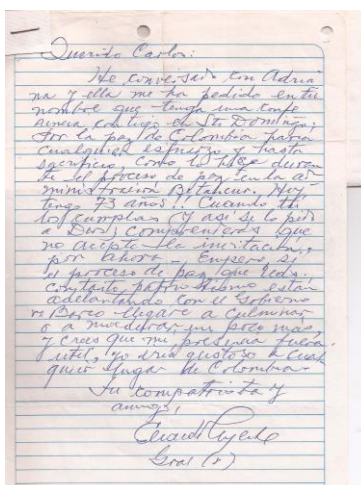 Querido Carlos:
He conversado con Adria
na y ella me ha pedido en tu
nombre que tenga una confe
rencia contigo en Sto Domingo;
Por la paz de Colombia haría
cualquier esfuerzo y hasta
sacrificio como lo hice duran
te el proceso de paz en la ad
ministración Betancur. Hoy
tengo 73 años!! Cuando tú
los cumplas (y así se lo pido
a Dios) comprenderás que
no acepte la invitación,
por ahora - Empero, si
el proceso de paz que Uds.
con tanto patriotismo están
adelantando con el Gobierno
Barco llegare a culminar
o a madurar un poco más,
y crees que mi presencia fuera
útil, yo iría gustoso a cual
quier lugar de Colombia -
Tu compatriota y
amigo,
Gral (r)